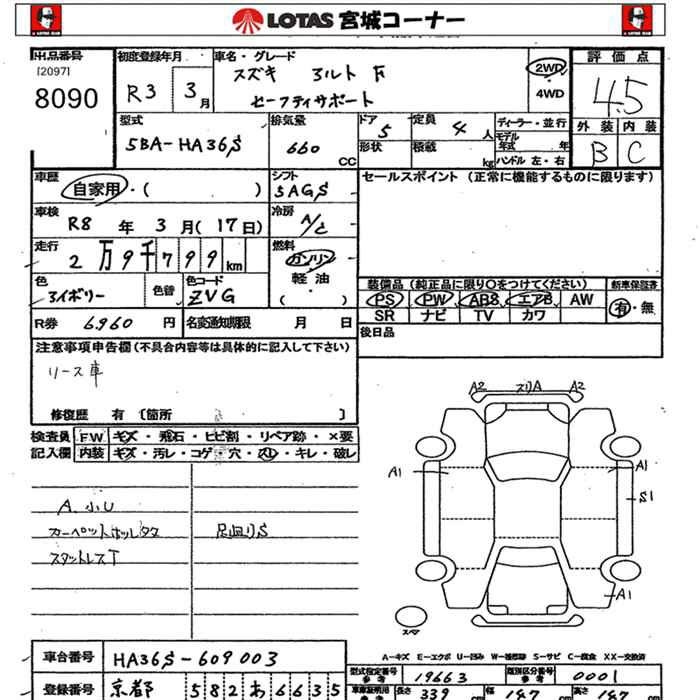 LOTAS 宮城コーナー
出品番号
[2097]
8090
初度登録年月
R3 3月
車名・グレード
スズキ アルト F
セーフティサポート
2WD
4WD
評価点
4.5
外装 内装
B C
型式
5BA-HA36S
排気量
660 CC
ドア 5
形状
定員 4 人
積載 kg
ディーラー・並行
モデル年式 年
ハンドル 左・右
車歴
自家用・( )
シフト
5AGS
セールスポイント (正常に機能するものに限ります)
車検
R8 年 3 月(17日)
冷房
A/C
走行
2万9千799km
燃料
ガソリン
軽油
( )
色
アイボリー
色替
色コード
ZVG
装備品(純正品に限り○をつけてください)
PS PW ABS エアB AW
SR ナビ TV カワ
新車保証書
有・無
R券 6,960 円
名変通知期限 月 日
後日品
注意事項申告欄(不具合内容等は具体的に記入して下さい)
リース車
修復歴 有 〔箇所 〕
検査員記入欄
FW キズ・飛石・ヒビ割・リペア跡・×要
内装 キズ・汚レ・コゲ・穴・スレ・キレ・破レ
A、小U
カーペットホツレタタ
スタットレスT
足廻りS
A2 スリA A2
A1 A1
S1
A1
スペア
A-キズ E-エクボ U-凹み W-補修跡 S-サビ C-腐食 XX-交換済
車台番号 HA36S-609003
登録番号 京都 582 あ 6635
型式指定番号 参考 19663
類別区分番号 参考 0001
車庫証明用 参考 長さ 339 cm 幅 147 cm 高さ 147 cm